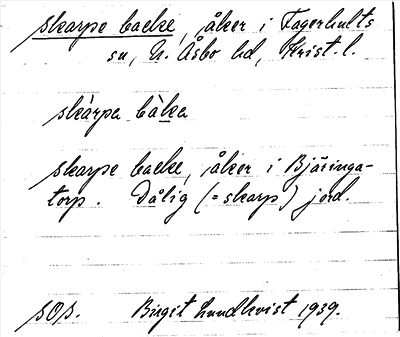 skarpe backe, åker i Fagerhults
sn, N. Åsbo hd, Krist. l.
skàrpa bàka
skarpe backe, åker i Bjäringa-
torp. Dålig (= skarp) jord.
SOS. Birgit Lundkvist 1939.